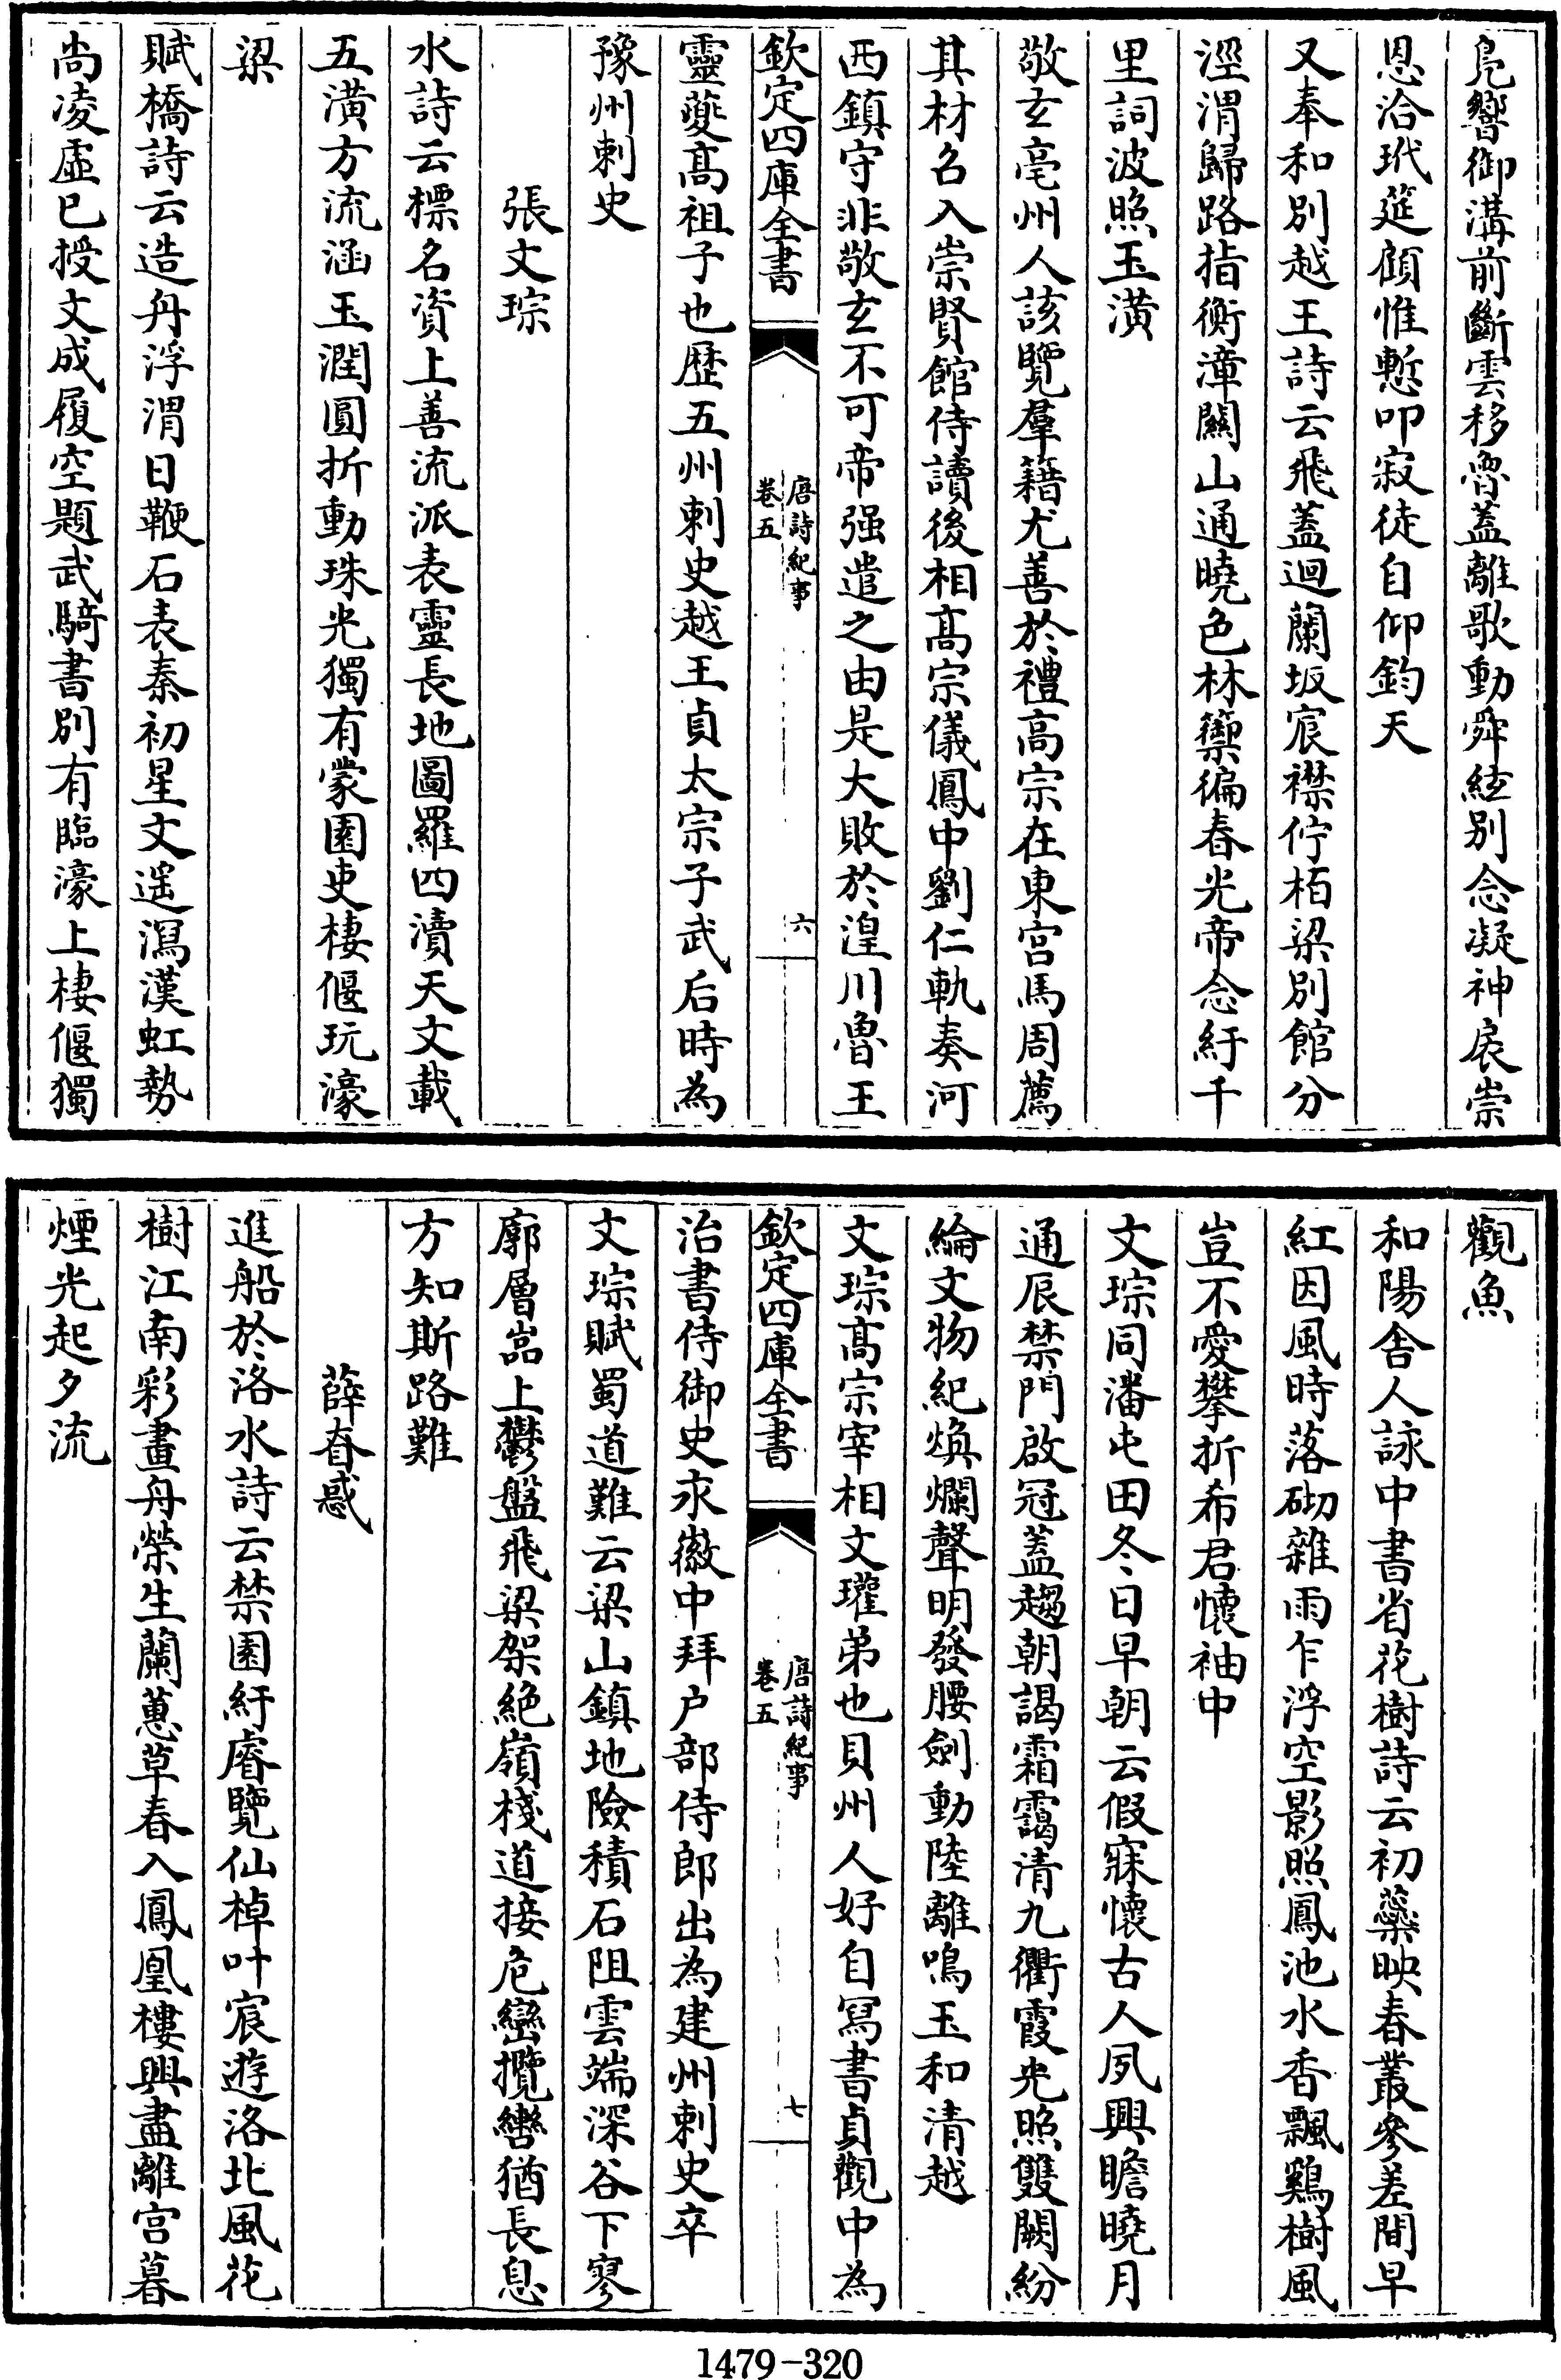 鳧響御溝前斷雲移魯蓋離歌動舜絃別念凝神扆崇
恩洽玳筵顧惟慙叩寂徒自仰鈞天
又奉和別越王詩云飛蓋迴蘭坂宸襟佇栢梁別館分
涇渭歸路指衡漳關山通曉色林籞徧春光帝念紆千
里詞波照玉潢
敬玄亳州人該覽羣籍尤善於禮高宗在東宫馬周薦
其材召入崇賢館侍讀後相髙宗儀鳳中劉仁軌奏河
西鎮守非敬玄不可帝强遣之由是大敗於湟川魯王
欽定四庫全書
唐詩紀事
卷五
六
靈夔髙祖子也歴五州刺史越王貞太宗子武后時為
豫州刺史
張文琮
水詩云標名資上善流派表靈長地圖羅四瀆天文載
五潢方流涵玉潤圓折動珠光獨有蒙園吏棲偃玩濠
梁
賦橋詩云造舟浮渭日鞭石表秦初星文遥瀉漢虹勢
尚凌虛已授文成履空題武騎書別有臨濠上棲偃獨
觀魚
和陽舍人詠中書省花樹詩云初蘂映春叢參差間早
紅因風時落砌雜雨乍浮空影照鳳池水香飄鷄樹風
豈不愛攀折希君懷袖中
文琮同潘屯田冬日早朝云假寐懷古人夙興瞻曉月
通辰禁門啟冠蓋趨朝謁霜靄清九衢霞光照雙闕紛
綸文物紀焕爛聲明發腰劍動陸離鳴玉和清越
文琮髙宗宰相文瓘弟也貝州人好自冩書貞觀中為
欽定四庫全書
唐詩紀事
卷五
七
治書侍御史永徽中拜户部侍郎出為建州刺史卒
文琮賦蜀道難云梁山鎮地險積石阻雲端深谷下寥
廓層嵒上鬱盤飛梁架絶嶺棧道接危巒攬轡猶長息
方知斯路難
薛眘惑
進船於洛水詩云禁園紆睿覽仙棹叶宸遊洛北風花
樹江南彩畫舟榮生蘭蕙草春入鳳凰樓興盡離宫暮
煙光起夕流
1479-320